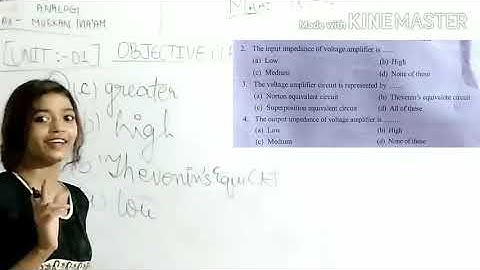 ANALOG
MUSKAN MA'AM
Made with KINEMASTER
[UNIT:-01] OBJECTIVE
2. The input impedance of voltage amplifier is ......
(a) Low (b) High
(c) Medium (d) None of these
3. The voltage amplifier circuit is represented by ......
(a) Norton equivalent circuit (b) Thevenin's equivalent circuit
(c) Superposition equivalent circuit (d) All of these
4. The output impedance of voltage amplifier is ......
(a) Low (b) High
(c) Medium (d) None of these
(c) greater
high
Thevonin's Equi CKT
low